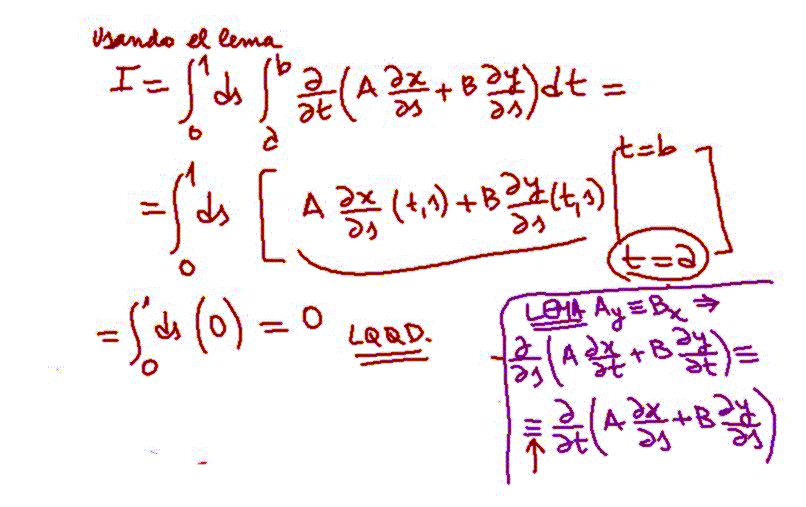 Usando el lema
I = ∫₀¹ ds ∫ₐᵇ ∂/∂t (A ∂x/∂s + B ∂y/∂s) dt =
= ∫₀¹ ds [ A ∂x/∂s (t,s) + B ∂y/∂s (t,s) |t=b t=a ]
= ∫₀¹ ds (0) = 0 LQQD.
LEMA Ay ≡ Bx ⇒
∂/∂s (A ∂x/∂t + B ∂y/∂t) ≡
≡ ∂/∂t (A ∂x/∂s + B ∂y/∂s)